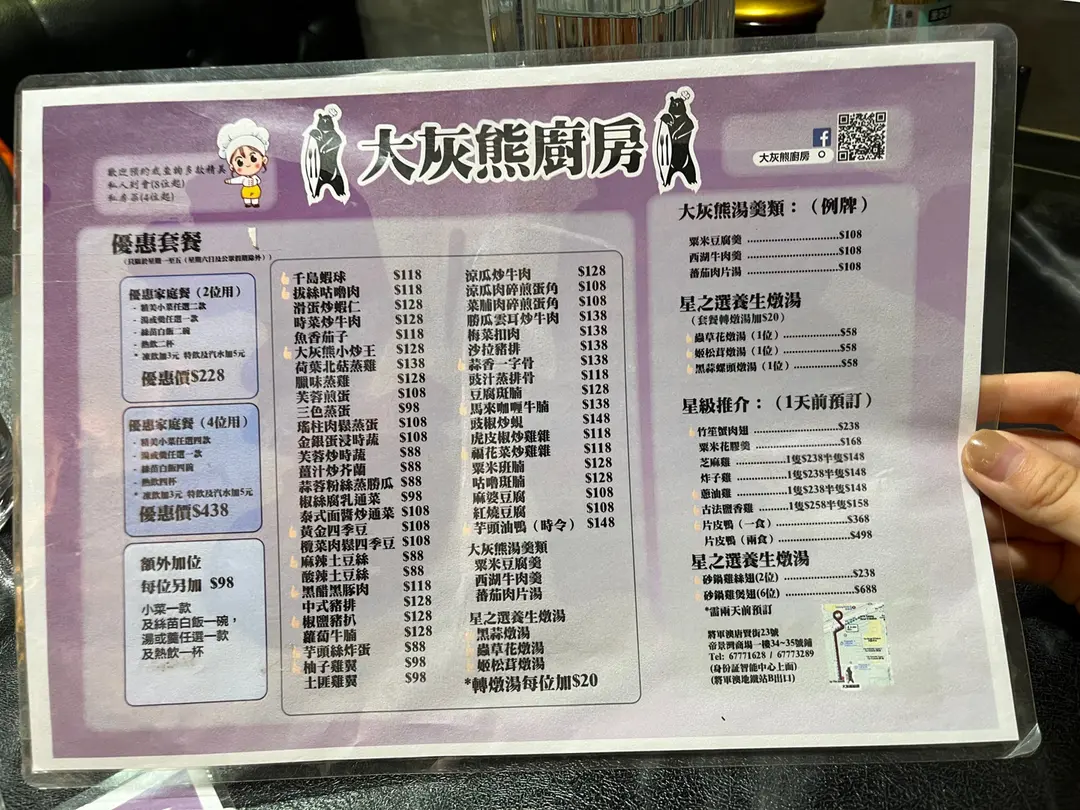 歡迎預約或查詢多款精美
私人到會(8位起)
私房菜(4位起)
大灰熊廚房
大灰熊廚房
優惠套餐
(只限於星期一至五 (星期六日及公眾假期除外))
優惠家庭餐 (2位用)
- 精美小菜任選二款
- 湯或羹任選一款
- 絲苗白飯二碗
- 熱飲二杯
* 凍飲加3元 特飲及汽水加5元
優惠價$228
優惠家庭餐 (4位用)
- 精美小菜任選四款
- 湯或羹任選一款
- 絲苗白飯四碗
- 熱飲四杯
* 凍飲加3元 特飲及汽水加5元
優惠價$438
額外加位
每位另加 $98
小菜一款
及絲苗白飯一碗，
湯或羹任選一款
及熱飲一杯
千島蝦球 $118
拔絲咕嚕肉 $118
滑蛋炒蝦仁 $128
時菜炒牛肉 $128
魚香茄子 $118
大灰熊小炒王 $128
荷葉北菇蒸雞 $138
臘味蒸雞 $128
芙蓉煎蛋 $108
三色蒸蛋 $98
瑤柱肉鬆蒸蛋 $108
金銀蛋浸時蔬 $108
芙蓉炒時蔬 $88
薑汁炒芥蘭 $88
蒜蓉粉絲蒸勝瓜 $88
椒絲腐乳通菜 $98
泰式面醬炒通菜 $108
黃金四季豆 $108
欖菜肉鬆四季豆 $108
麻辣土豆絲 $88
酸辣土豆絲 $88
黑醋黑豚肉 $118
中式豬排 $128
椒鹽豬扒 $128
蘿蔔牛腩 $128
芋頭絲炸蛋 $88
柚子雞翼 $98
土匪雞翼 $98
涼瓜炒牛肉 $128
涼瓜肉碎煎蛋角 $108
菜脯肉碎煎蛋角 $108
勝瓜雲耳炒牛肉 $138
梅菜扣肉 $138
沙拉豬排 $138
蒜香一字骨 $138
豉汁蒸排骨 $118
豆腐斑腩 $128
馬來咖喱牛腩 $138
豉椒炒蜆 $148
虎皮椒炒雞雜 $118
福花菜炒雞雜 $118
粟米斑腩 $128
咕嚕斑腩 $128
麻婆豆腐 $108
紅燒豆腐 $108
芋頭油鴨 (時令) $148
大灰熊湯羹類
粟米豆腐羹
西湖牛肉羹
蕃茄肉片湯
星之選養生燉湯
黑蒜燉湯
蟲草花燉湯
姬松茸燉湯
*轉燉湯每位加$20
大灰熊湯羹類：(例牌)
粟米豆腐羹 ........................$108
西湖牛肉羹 ........................$108
蕃茄肉片湯 ........................$108
星之選養生燉湯
(套餐轉燉湯加$20)
蟲草花燉湯 (1位) ..................$58
姬松茸燉湯 (1位) ..................$58
黑蒜螺頭燉湯 (1位) ................$58
星級推介：(1天前預訂)
竹笙蟹肉翅 ........................$238
粟米花膠羹 ........................$168
芝麻雞 ................1隻$238半隻$148
炸子雞 ................1隻$238半隻$148
蔥油雞 ................1隻$238半隻$148
古法鹽香雞 ............1隻$258半隻$158
片皮鴨 (一食) .....................$368
片皮鴨 (兩食) .....................$498
星之選養生燉湯
砂鍋雞絲翅(2位) ..................$238
砂鍋雞煲翅(6位) ..................$688
*需兩天前預訂
將軍澳唐賢街23號
帝景灣商場一樓34~35號鋪
Tel: 67771628 / 67773289
(身份証智能中心上面)
(將軍澳地鐵站B出口)